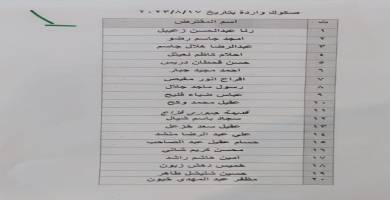 صكوك واردة بتاريخ ٢٠٢٣/٨/١٧
ت اسم المقترض
١ رنا عبدالحسن زغيبل
٢ امجد جاسم رضو
٣ عبدالرضا خلال جاسم
٤ احلام كاظم نعيثل
٥ حسن قحطان دريس
٦ احمد مجيد جبار
٧ افراح انور مغيص
٨ رسول ماجد جلال
٩ عباس ضياء فليح
١٠ عقيل محمد وكح
١١ جبوري
١٢ سجاد باسم شيال
١٣ عقيل سعد خزعل
١٤ علي عبد الرضا منشد
١٥ حسام عقيل عبد الصاحب
١٦ محسن كريم شاتي
١٧ امين هاشم راشد
١٨ خميس دهش زبون
١٩ حسين شليشل ظاهر
٢٠ مظفر عبد المهدي خيون